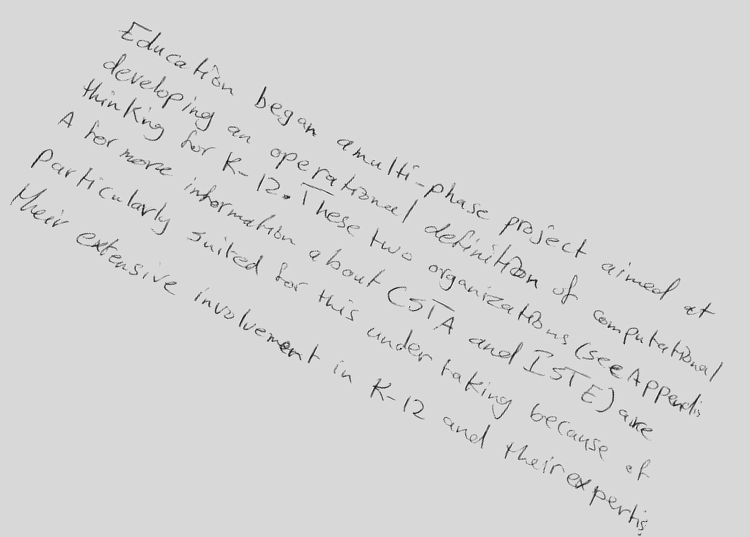 Education began a multi-phase project aimed at
developing an operational definition of computational
thinking for K-12. These two organizations (see Appendis
A for more information about CSTA and ISTE) are
particularly suited for this under taking because of
their extensive involvement in K-12 and their expertis